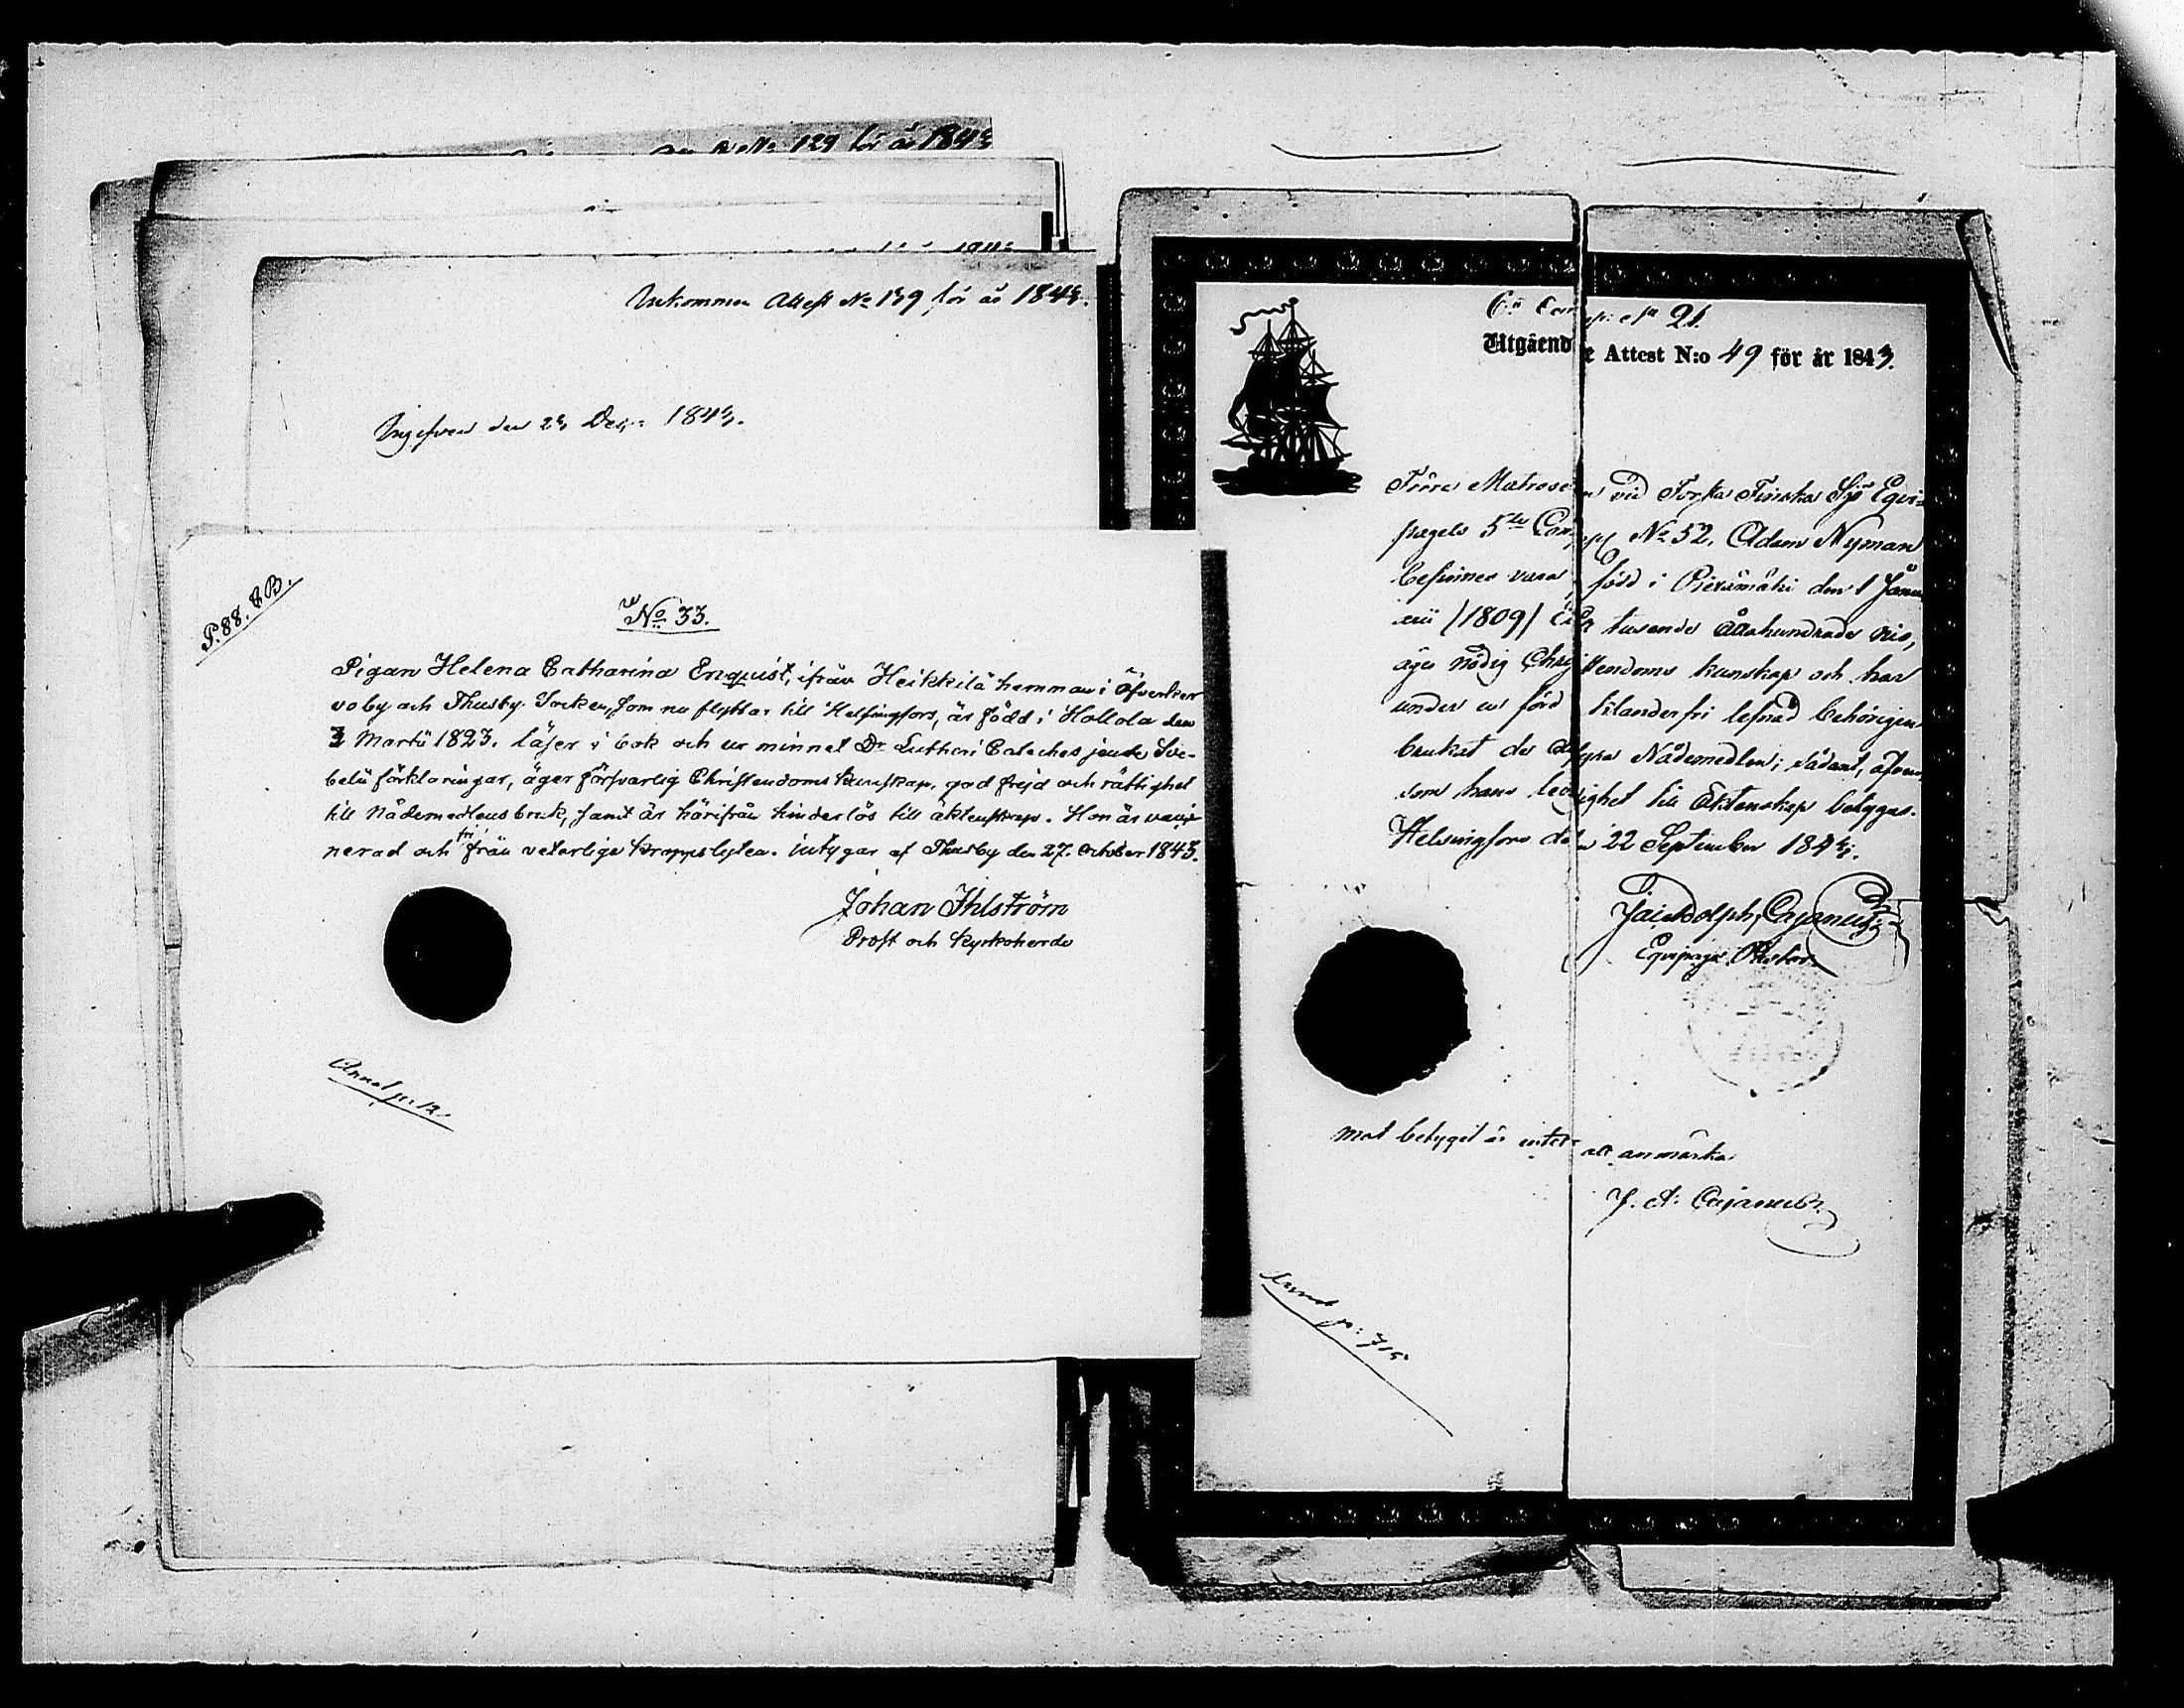 No 129 för år 1843
Inkommen Attest No 139 för år 1843.
Ingifven den 23 Dec. 1843.
P. 88. C B.
No 33.
Pigan Helena Catharina Enqvist, ifrån Heikkilä hemman i Öfverker
voby och Thusby Socken, som nu flyttar till Helsingfors, är född i Hollola den
3 Martii 1823. läser i bok och ur minnet Dr Lutheri Cateches jemte Sve-
belii förklaringar, äger försvarlig Christendoms kunskap, god frejd och rättighet
till Nådemedlens bruk, samt är härifrån hinderlös till äktenskap. Hon är vacci-
nerad och fri från veterlige kroppslyten. intygar af Thusby den 27. October 1843.
Johan Ihlström
Prost och Kyrkoherde
Annot p. 12.
21.
Utgående Attest N:o 49 för år 1843.
Förre Matrosen vid Första Finska Sjö Eqvi-
pagets 5te Comp. No 52. Adam Nyman
befinnes vara född i Pieksämäki den 1 Janu-
arii (1809) Ett tusende Åttahundrade nio,
äger nödig Christendoms kunskap och har
under en förd klanderfri lefnad behörigen
brukat de dyra Nådemedlen; sådant, äfven
som hans ledighet till Äktenskap betygas.
Helsingfors den 22 September 1843.
Jac. Adolph. Cajanus
Eqvipage Pastor.
mot betyget är intet att anmärka
J. A. Cajanus
Annot p: 715